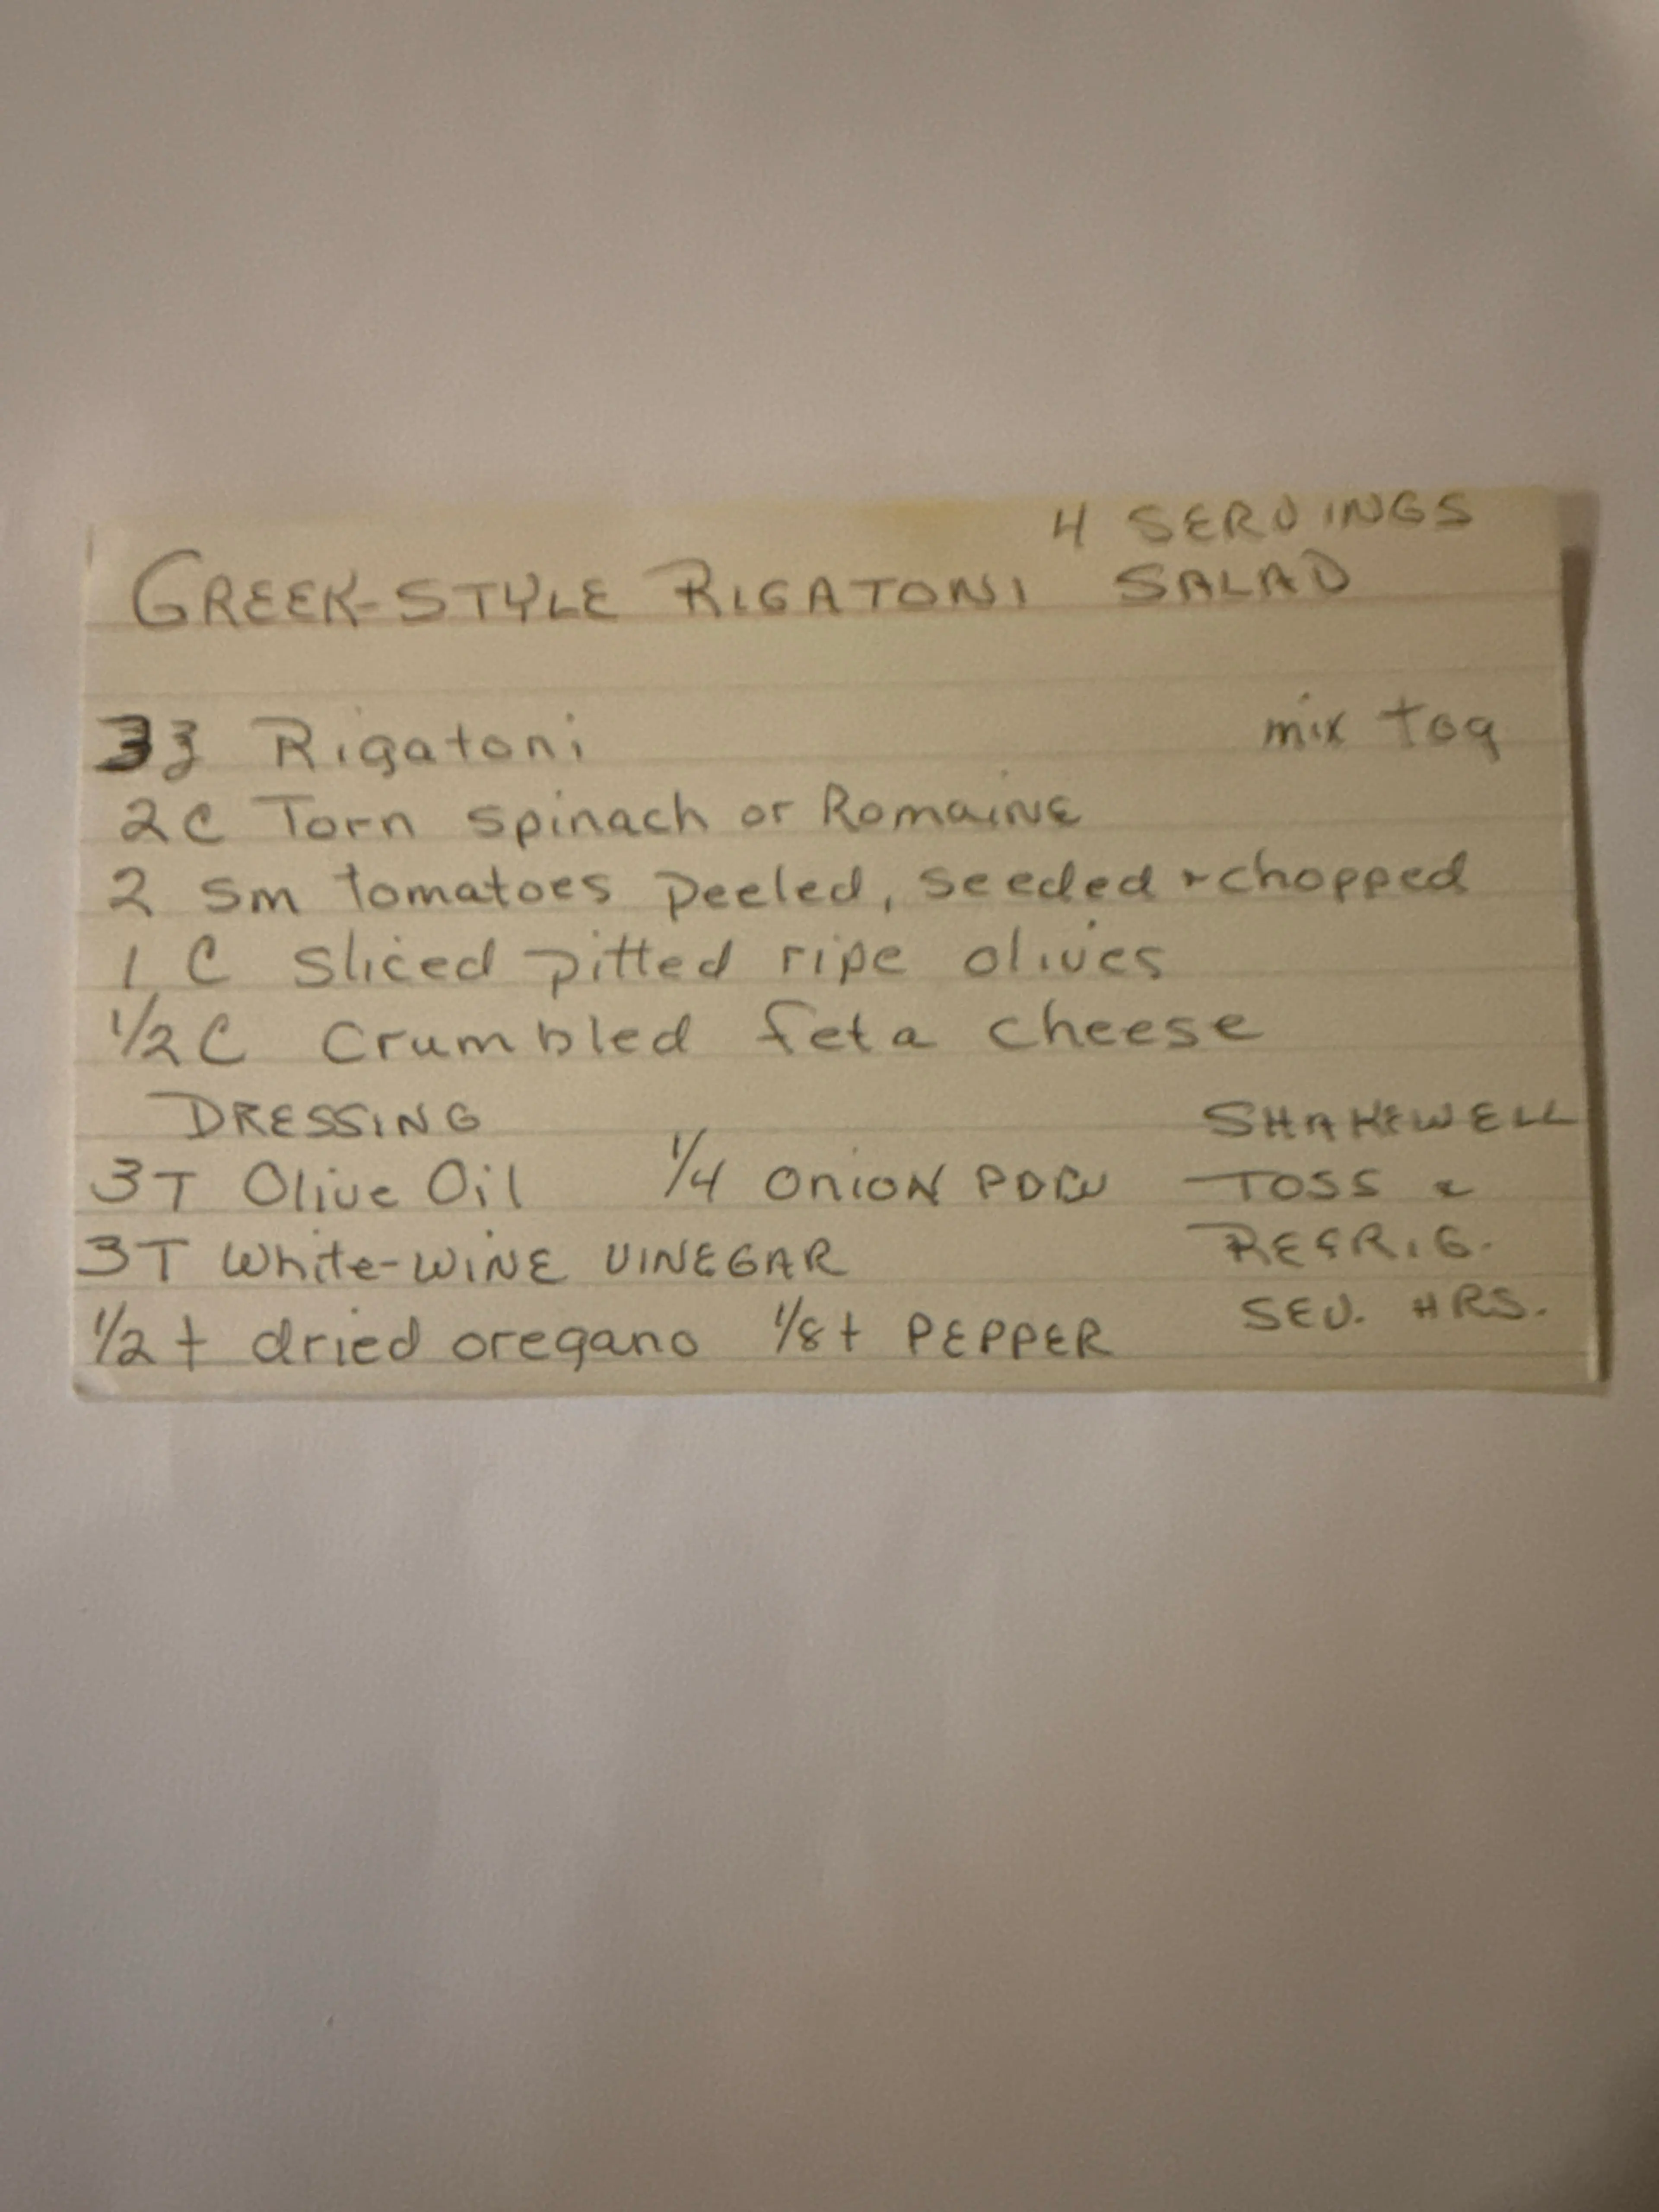 4 SERVINGS
GREEK-STYLE RIGATONI SALAD
3 Rigatoni
mix tog
2C Torn spinach or Romaine
2 sm tomatoes peeled, seeded + chopped
1 C sliced pitted ripe olives
1/2 C Crumbled feta cheese
DRESSING
SHAKEWELL
3T Olive Oil 1/4 ONION PDW
TOSS &
3T White-WINE VINEGAR
REFRIG.
1/2 t dried oregano 1/8 t PEPPER
SEV. HRS.